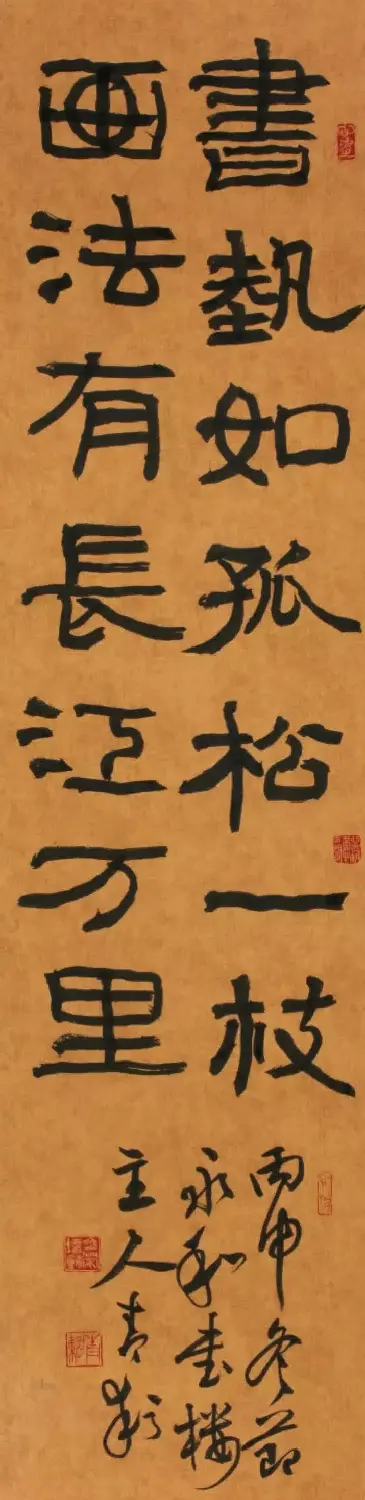 書勢如孤松一枝
画法有長江万里
丙申冬節
永和書楼
主人青